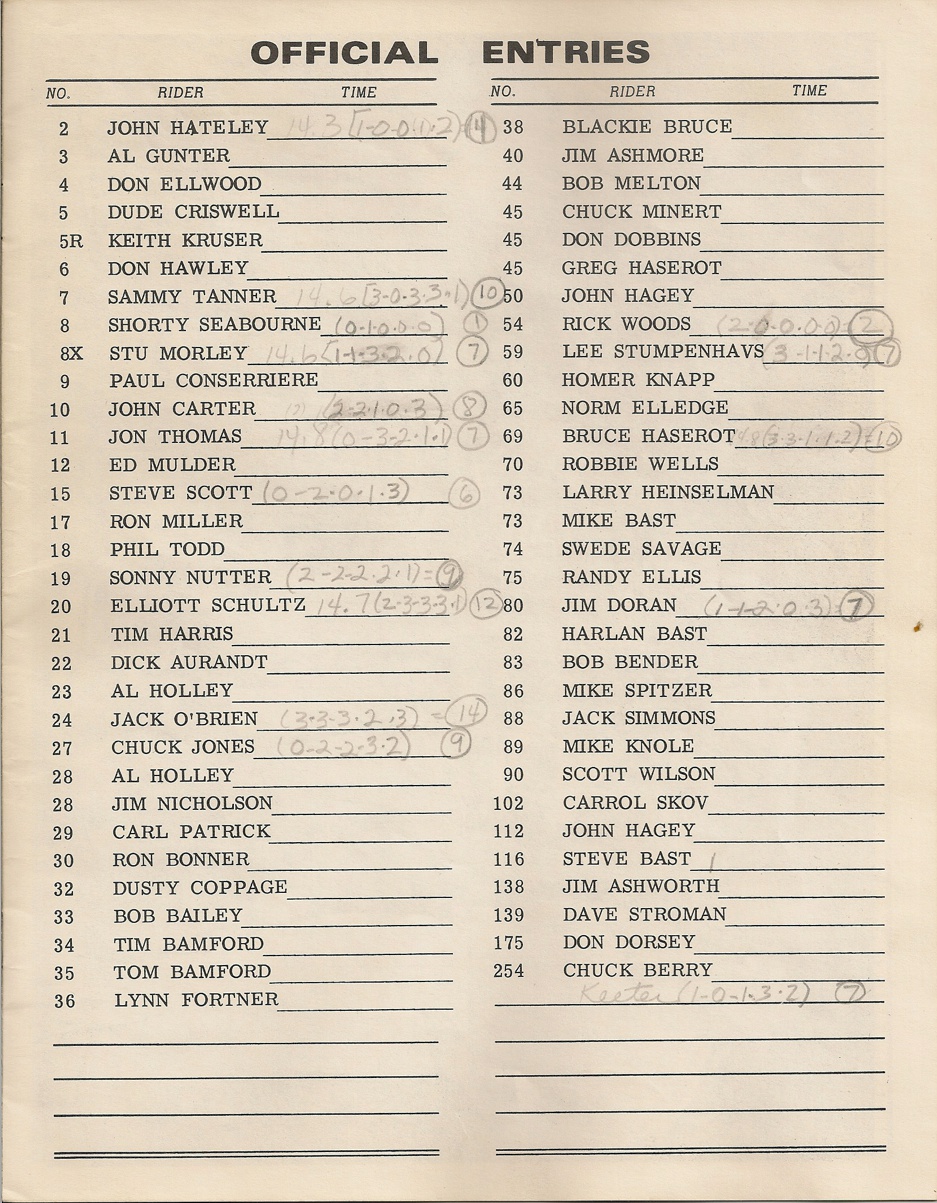 OFFICIAL ENTRIES
NO. RIDER TIME
2 JOHN HATELEY 14.3 (1-0-0-1-2) = 4
3 AL GUNTER
4 DON ELLWOOD
5 DUDE CRISWELL
5R KEITH KRUSER
6 DON HAWLEY
7 SAMMY TANNER 14.6 (3-0-3-3-1) 10
8 SHORTY SEABOURNE (0-1-0-0-0) 1
8X STU MORLEY 14.6 (1-1-3-2-0) 7
9 PAUL CONSERRIERE
10 JOHN CARTER (2-2-1-0-3) 8
11 JON THOMAS 14.8 (0-3-2-1-1) 7
12 ED MULDER
15 STEVE SCOTT (0-2-0-1-3) 6
17 RON MILLER
18 PHIL TODD
19 SONNY NUTTER (2-2-2-2-1) = 9
20 ELLIOTT SCHULTZ 14.7 (2-3-3-3-1) 12
21 TIM HARRIS
22 DICK AURANDT
23 AL HOLLEY
24 JACK O'BRIEN (3-3-3-2-3) = 14
27 CHUCK JONES (0-2-2-3-2) 9
28 AL HOLLEY
28 JIM NICHOLSON
29 CARL PATRICK
30 RON BONNER
32 DUSTY COPPAGE
33 BOB BAILEY
34 TIM BAMFORD
35 TOM BAMFORD
36 LYNN FORTNER
NO. RIDER TIME
38 BLACKIE BRUCE
40 JIM ASHMORE
44 BOB MELTON
45 CHUCK MINERT
45 DON DOBBINS
45 GREG HASEROT
50 JOHN HAGEY
54 RICK WOODS (2-0-0-0-0) 2
59 LEE STUMPENHAVS (3-1-1-2-0) 7
60 HOMER KNAPP
65 NORM ELLEDGE
69 BRUCE HASEROT (3-3-1-1-2) = 10
70 ROBBIE WELLS
73 LARRY HEINSELMAN
73 MIKE BAST
74 SWEDE SAVAGE
75 RANDY ELLIS
80 JIM DORAN (1-1-2-0-3) = 7
82 HARLAN BAST
83 BOB BENDER
86 MIKE SPITZER
88 JACK SIMMONS
89 MIKE KNOLE
90 SCOTT WILSON
102 CARROL SKOV
112 JOHN HAGEY
116 STEVE BAST 1
138 JIM ASHWORTH
139 DAVE STROMAN
175 DON DORSEY
254 CHUCK BERRY
Keeter (1-0-1-3-2) 7